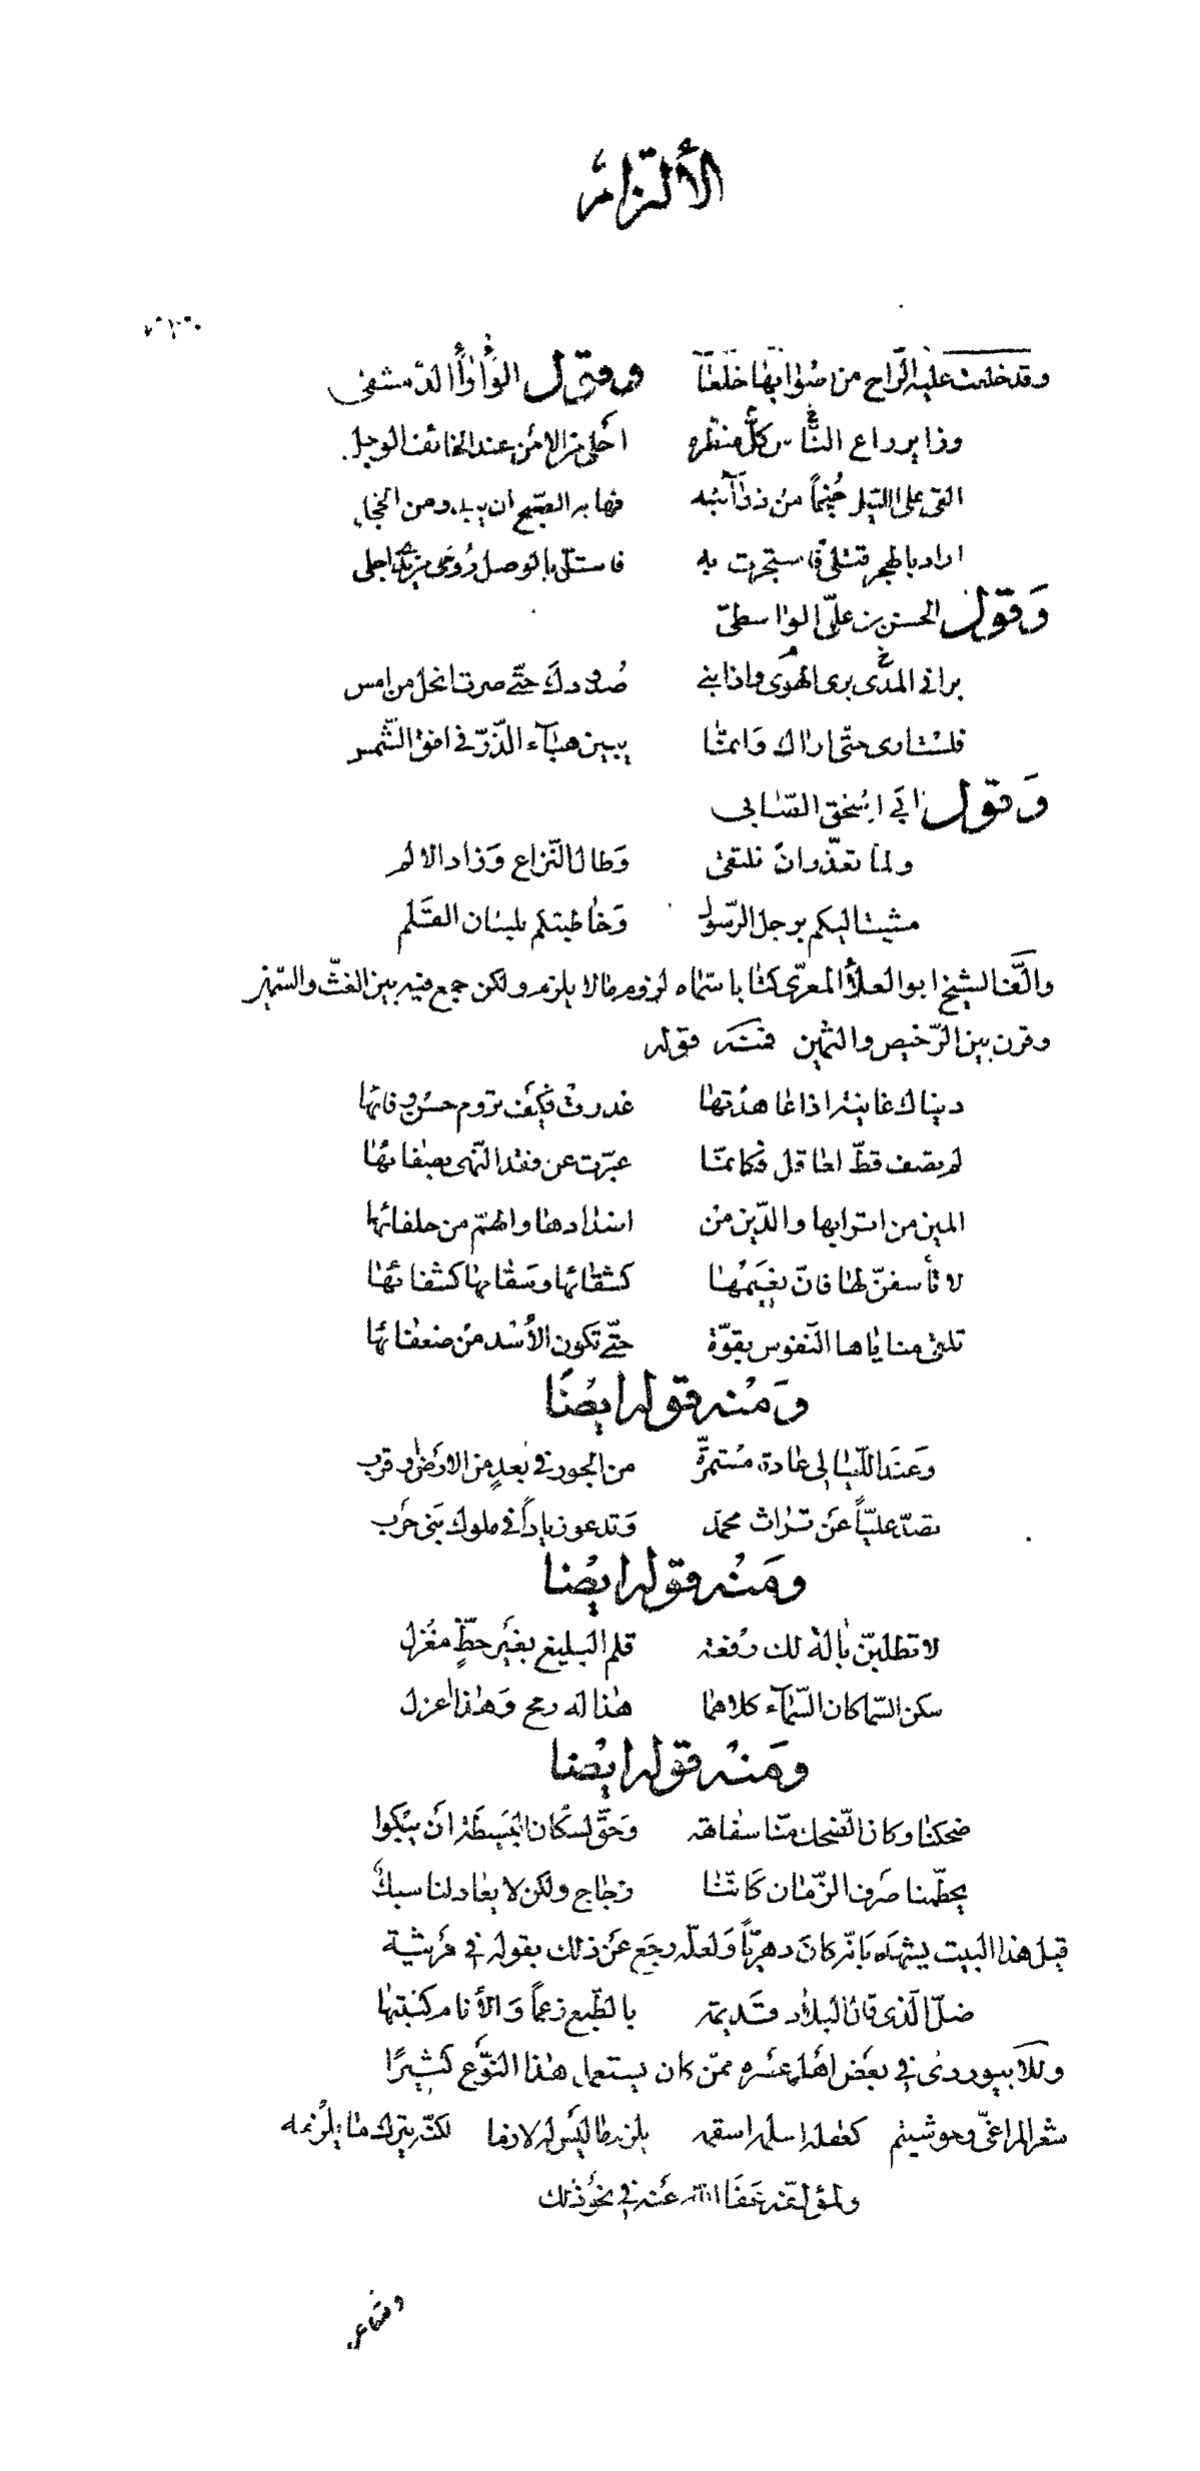 الألتزام
وقد خلعت عليه الراح من اثوابها خلعًا وقول الوأواء الدمشقى
وزاير راع الناس كلّ منظره احلى من الامن عند الخائف الوجل
القى على الليل من ذوآئبه فهابه الصبح ان يبدو من الخجل
اراد بالهجر قتلى فاستجرت به فاستلّ بالوصل روحى من اجلى
وَقول الحسن بن علىّ الواسطىّ
برانى الهوى برى المدى واذابنى صُدودك حتّى صرت انحل من امس
فلست ارى حتّى اراك وَانمّا يبين هبآء الذّرّ فى افق الشّمس
وَقول ابى اسحق الصّابى
ولمّا تعذّر ان نلتقى وَطال النّزاع وَزاد الالم
مشيت اليكم برجل الرّسول وَخاطبتكم بلسان القَلم
والّف الشيخ ابو العلاء المعرّى كتابا سمّاه لزوم مالا يلزم ولكن جمع فيه بين الغثّ والسّمين
وقرن بين الرّخيص والثمين فمنه قوله
دنياك غانية اذا عاهدتها غدرت فكيف تروم حسن وفائها
لم يصف قطّ لعاقل فكانمّا عبّرت عن فقد النّهى بصفائها
المين من اترابها والدّين من اضدادها والهمّ من حلفائها
لا تأسفنّ لها فانّ نعيمها كشقائها وسقامها كشفائها
تلقى مناياها النّفوس بقوّة حتّى تكون الأسد من ضعفائها
وَمنه قوله ايضًا
وَعند اللّيالى عادة مستمرّة من الجور فى بُعدٍ من الارض وقرب
تصدّ عليّاً عن تراث محمّد وَتدعو زياداً فى ملوك بنى حرب
ومنه قوله ايضا
لا تطلبنّ بآلة لك رفعة قلم البليغ بغير حظٍّ مغزل
سكن السّماكان السّمآء كلاهما هذا له رمح وَهذا اعزل
ومنه قوله ايضا
ضحكنا وكان الضّحك منّا سفاهة وَحقّ لسكّان البسيطة ان يبكوا
يحطّمنا صرف الزّمان كانّنا زجاج ولكن لا يعاد لنا سبك
قيل هذا البيت يشهد بانّه كان دهريّاً وَلعلّه رجع عن ذلك بقوله فى مرثية
ضلّ الّذى قال البلاد قديمة بالطّبع زعماً وَالأنام كنبتها
وللابيوردى فى بعض اهل عصره ممّن كان يستعمل هذا النّوع كثيرًا
شعر المراغىّ وحوشيتم كعقله اسلمه اسقمه يلزم ما ليس له لازما لكنّه يترك ما يلزمه
ولمؤلفه عفا الله عنه فى نحو ذلك